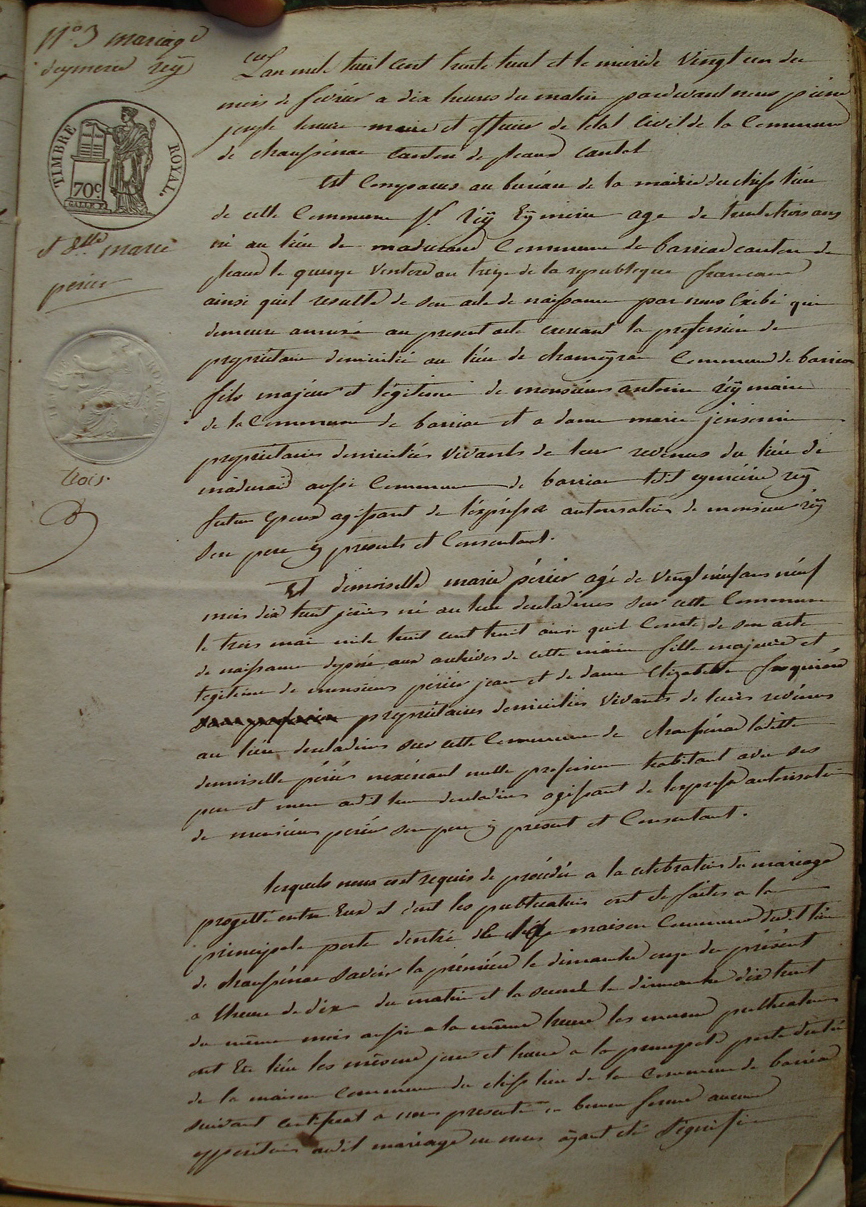 N° 3 mariage
deymeric reÿ
TIMBRE ROYAL.
70c
et d.elle marie
perier
trois.
L'an mile huit cent trente huit et le mercredi vingt un du
mois de fevrier a dix heures du matin pardevant nous pierre
joseph maire et officier de letat Civil de la Commune
de chaussenac canton de pleaud cantal
Est Comparu au bureau de la mairie du cheff lieu
de cette Commune reÿ Eymeric age de trente trois ans
né au lieu de madurand Commune de barriac canton de
pleaud le quinze ventose an treize de la republique francaise
ainsi quil resulte de son acte de naissance par nous Exibé qui
demeure annexé au present acte exercant la profession de
propriétaire domicilié au lieu de chameyrac Commune de barriac
fils majeur et légitime de monsieur antoine reÿ maire
de la Commune de barriac et a dame marie
propriétaires domiciliés vivants de leur revenus du lieu de
madurand aussi Commune de barriac ledit eymeric reÿ
futur Epoux agissant de lexpresse autorisation de monsieur reÿ
son pere ÿ present et Consentant.
Et demoiselle marie périer agé de vingt neuf ans neuf
mois dix huit jours né au lieu descladines sur cette Commune
le trois mai mile huit cent huit ainsi quil Conste de son acte
de naissance deposé aux archives de cette mairie fille majeure et
legitime de monsieur périer jean et de dame Elizabette
propriétaires domiciliés vivants de leurs revenus
au lieu descladines sur cette Commune de chaussenac ladite
demoiselle périer nexercant nulle profession habitant avec ses
pere et mere audit lieu descladines agissant de lexpresse autorisation
de monsieur perier son pere ÿ present et Consentant.
lesquels nous ont requis de procéder a la celebration du mariage
progetté entre Eux et dont les publications ont été faites a la
principale porte dentré de maison Commune dudit lieu
de chaussenac savoir la première le dimanche onze du présent
a lheure de dix du matin et la seconde le dimanche dix huit
du même mois aussi a la même heure les mêmes publications
ont Eté lieu les mêmes jours et heure a la principale porte dentré
de la maison Commune du cheff lieu de la Commune de barriac
suivant certificat a nous presenté en bonne forme aucune
opposition audit mariage ne nous ayant été signifié